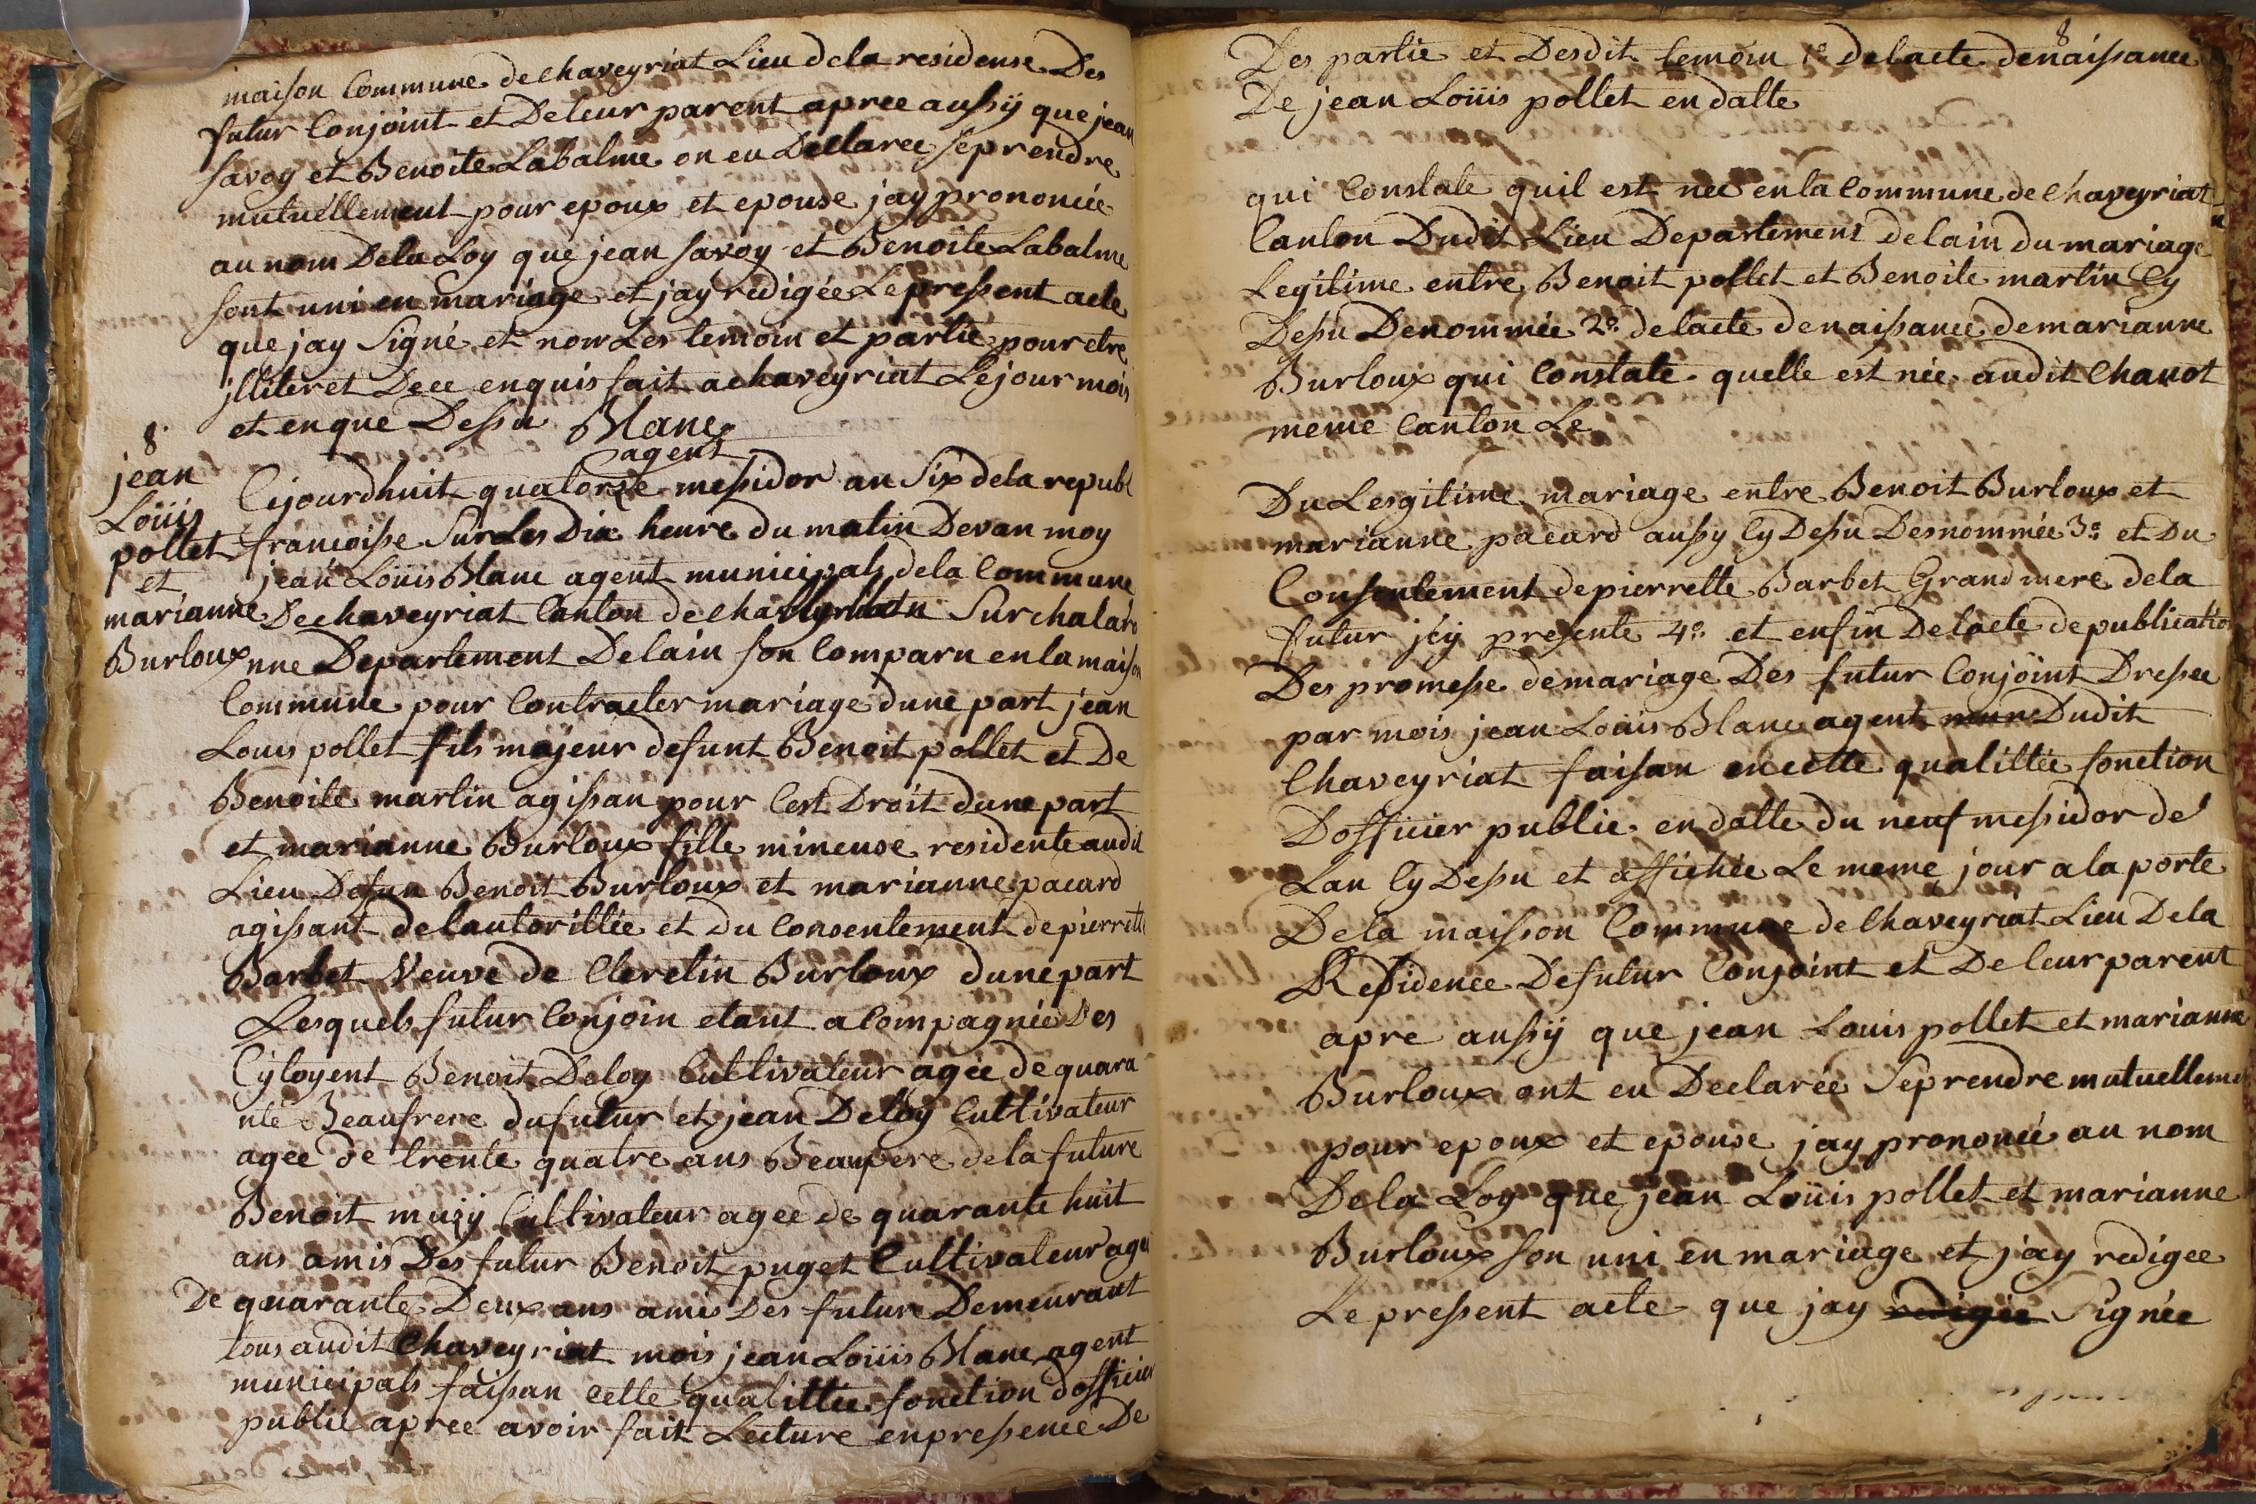 maison Commune de chaveyriat Lieu dela residense Des
futur Conjoint et De leur parent apree aussÿ que jean
savoy et Benoite Labalme on eu Dellaree se prendre
mutuellement pour epoux et epouse jay prononcée
au nom Dela Loy que jean savoy et Benoite Labalme
sont uni en mariage et jay redigée Le pressent acte
que jay Signé et non Les temoin et partie pour etre
jlliteret De ce enquis fait a chaveyriat Le jour mois
et en que Dessu Blanc
agent
8
jean
Loüis
pollet
et
marianne
Burloux
Cejourdhuit quatorze messidor an Six dela republ
francoisse Sur Les Dix heure du matin Devan moy
jean Loüis Blanc agent municipals dela Commune
De chaveyriat Canton de chaveyriat Sur chalaro
nne Departement Delain son Comparu en la maison
Commune pour Contracter mariage dune part jean
Louis pollet fils majeur defunt Benoit pollet et De
Benoite martin agissan pour Cest Droit dune part
et marianne Burloux fille mineuse residente audit
Lieu Defun Benoit Burloux et marianne pacard
agissant de lautorittée et Du Consentement de pierrette
Barbet Veuve de Claretin Burloux dune part
Lesquels futur Conjoin etant acompagnée Des
Cytoyent Benoit Deloy Cultivateur agée de quara
nte Beaufrere du futur et jean Deloy Cultivateur
agee de trente quatre ans Beaupere de la future
Benoit muzÿ Cultivateur agee de quarante huit
ans amis Des futur Benoit puget Cultivateur age
De quarante Deux ans amis Des futur Demeurant
tous audit Chaveyriat mois jean Loüis Blanc agent
municipals faissan cette qualittée fonction dofficier
public apree avoir fait Lecture en pressence De
8
Des partie et Desdit temoin 1º de lacte de naissance
De jean Loüis pollet en datte
qui Constate quil est nee en la Commune de Chaveyriat
Canton Dudit Lieu Departement de lain du mariage
Legitime entre Benoit pollet et Benoite martin Cy
Dessu Denommée 2º de lacte de naissance de marianne
Burloux qui Constate quelle est née audit Chanot
meme Canton Le
Du Lesgitime mariage entre Benoit Burloux et
marianne pacard aussy Cy Dessu Desnommée 3º et Du
Consentement de pierrette Barbet Grand mere de la
futur jcÿ presente 4º et enfin De lacte de publication
Des promesse de mariage Des futur Conjoint Dressee
par mois jean Loüis Blanc agent mun Dudit
Chaveyriat faisan en cette qualittée fonction
Dofficier public en datte du neuf messidor de
Lan Cy Dessu et affichée Le meme jour a la porte
De la maisson Commune de Chaveyriat Lieu De la
Residence De futur Conjoint et De leur parent
apre aussÿ que jean Louis pollet et marianne
Burloux ont eu Declarée Se prendre mutuellement
pour epoux et epouse jay prononcé au nom
De la Loy que jean Loüis pollet et marianne
Burloux son uni en mariage et jay redigee
Le pressent acte que jay redigée Signée